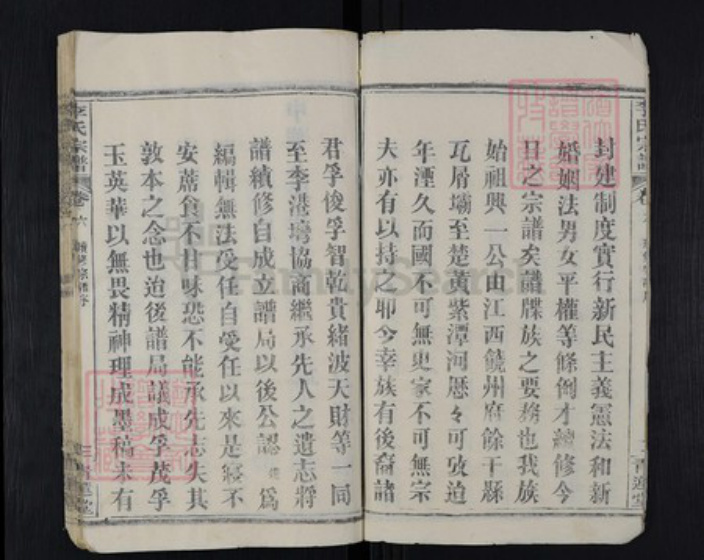 封建制度實行新民主義憲法和新
婚姻法男女平權等條倒才總修今
日之宗譜矣譜牒族之要務也我族
始祖興一公由江西饒州府餘干縣
瓦屑壩至楚黃紫潭河歷々可攷迨
年湮久而國不可無史家不可無宗
夫亦有以持之耶今幸族有後裔諸
君孚俊孚智乾貴緒波天財等一同
至李港塆協商繼承先人之遺志將
譜續修自成立譜局以後公認 為
編輯無法受任自受任以來是寢不
安蓆食不甘味恐不能承先志失其
敦本之念也迨後譜局議成孚茂孚
玉英華以無畏精神理成墨稿未有
李氏宗譜
卷六
續修宗譜序
青蓮堂
FamilySearch